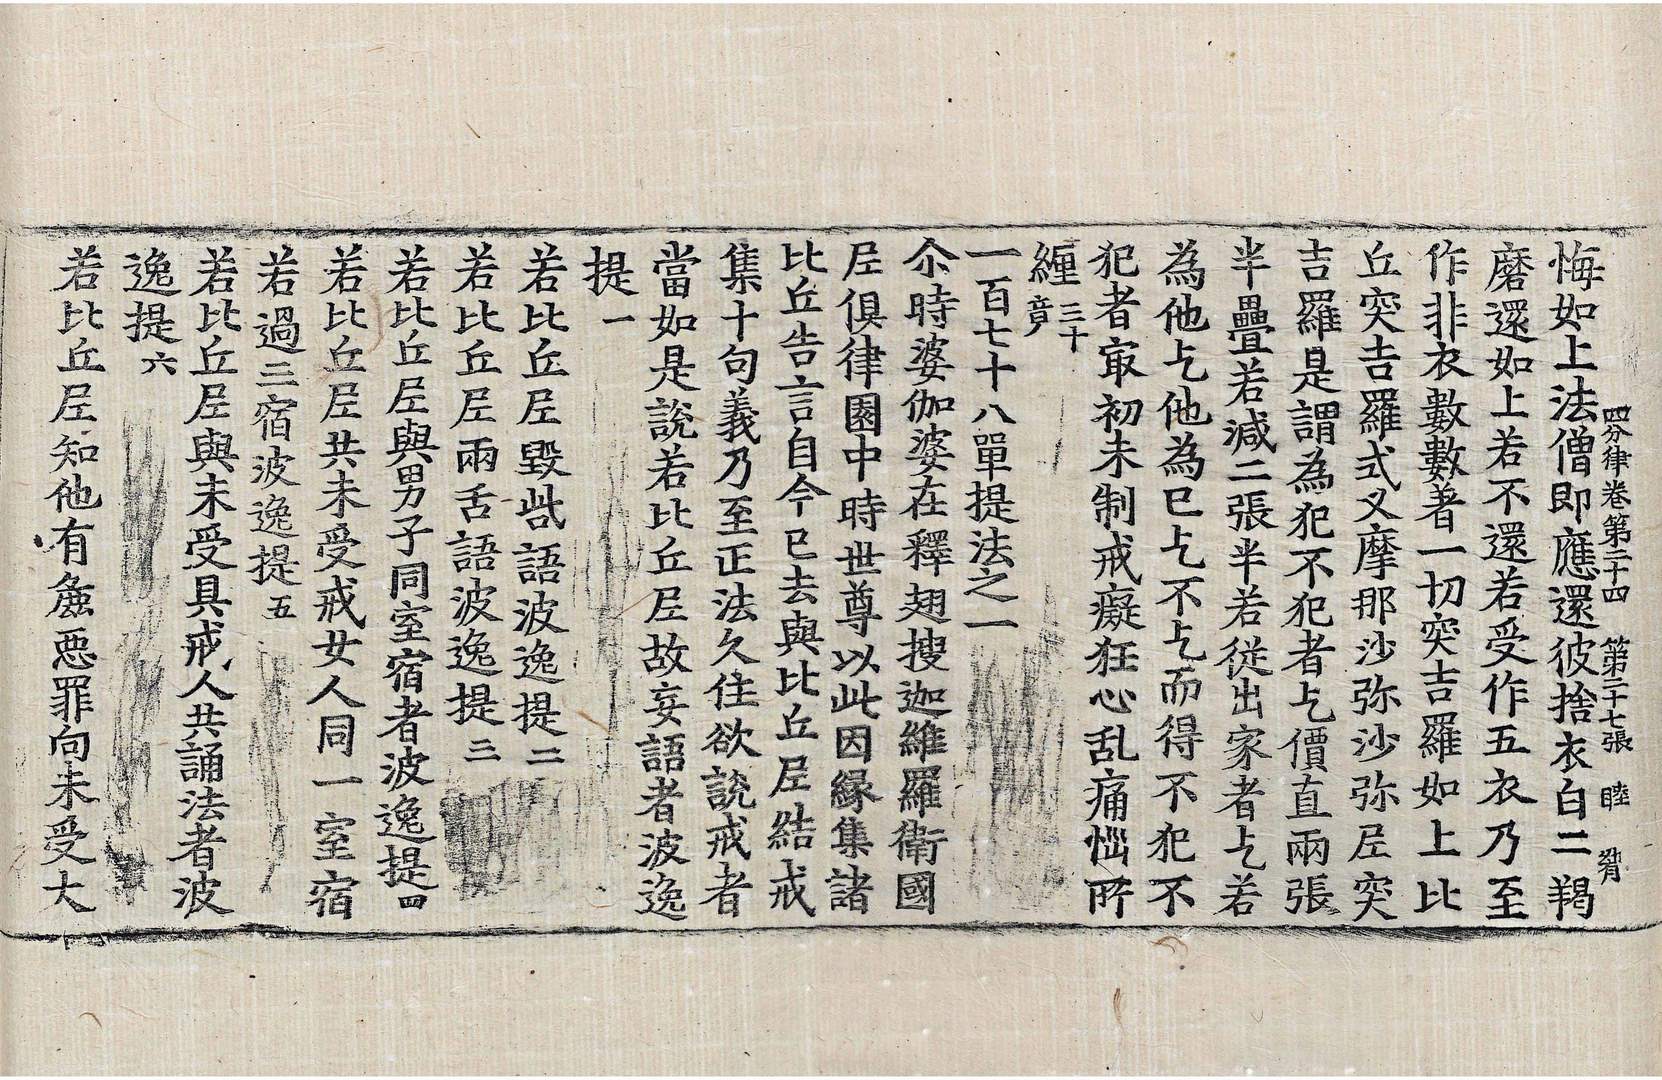 四分律卷第二十四　第二十七張　睦
悔如上法僧即應還彼捨衣白二羯
磨還如上若不還若受作五衣乃至
作非衣數數著一切突吉羅如上比
丘突吉羅式叉摩那沙弥沙弥尼突
吉羅是謂為犯不犯者乞價直兩張
半疊若減二張半若從出家者乞若
為他乞他為已乞不乞而得不犯不
犯者㝡初未制戒癡狂心乱痛惱所
纏 三十竟
一百七十八單提法之一
尒時婆伽婆在釋翅搜迦維羅衛國
尼俱律園中時世尊以此因緣集諸
比丘告言自今已去與比丘尼結戒
集十句義乃至正法久住欲說戒者
當如是說若比丘尼故妄語者波逸
提一
若比丘尼毀呰語波逸提二
若比丘尼兩舌語波逸提三
若比丘尼與男子同室宿者波逸提四
若比丘尼共未受戒女人同一室宿
若過三宿波逸提五
若比丘尼與未受具戒人共誦法者波
逸提六
若比丘尼知他有麁惡罪向未受大